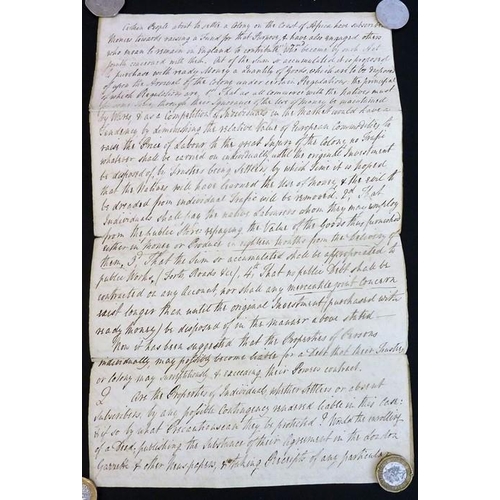 Certain People about to settle a Colony on the Coast of Africa have subscribed
Monies towards raising a Fund for that Purpose, & have also engaged others
who mean to remain in England to contribute, who become by such Act
jointly concerned with them. Out of the Sum so accumulated it is proposed
to purchase with ready Money a Quantity of Goods, which are to be disposed
of upon the Account of the Colony under certain Regulations the principal
of which Regulations are, That as all commerce with the Natives must
for some time, through their Ignorance of the Use of Money, be maintained
by Wares, & as a Competition of Individuals in the Market would have a
tendency by diminishing the relative Value of European Commodities to
raise the Price of Labour to the great Injury of the Colony, no Trafic
whatever shall be carried on individually until the original Investment
be disposed of by Trustees being Settlers, by which time it is hoped
that the Natives will have learned the Use of Money, & the evil to
be dreaded from individual Trafic will be removed. 2d. That
Individuals shall pay the native Labourers whom they may employ
from the public Store repaying the Value of the Goods thus furnished
either in Money or Produce in eighteen Months from the delivery of
them. 3d. That the Sum so accumulated shall be appropriated to
public Works, (Forts Roads &c) 4th. That no public Debt shall be
contracted on any Account nor shall any mercantile joint concern
exist longer than until the original Investment (purchased with
ready money) be disposed of in the manner above stated.
Now it has been suggested that the Properties of Persons
individually may possibly become liable for a Debt that their Trustees
or Colony may surreptitiously & exceeding their Powers contract.
Q
Are the Properties of Individuals, whether Settlers or absent
Subscribers, by any possible Contingency rendered liable in this Case:
& if so by what Precautions can they be protected? Would the enrolling
of a Deed, publishing the Substance of their Agreement in the London
Gazette & other Newspapers, & Receipts of any particular